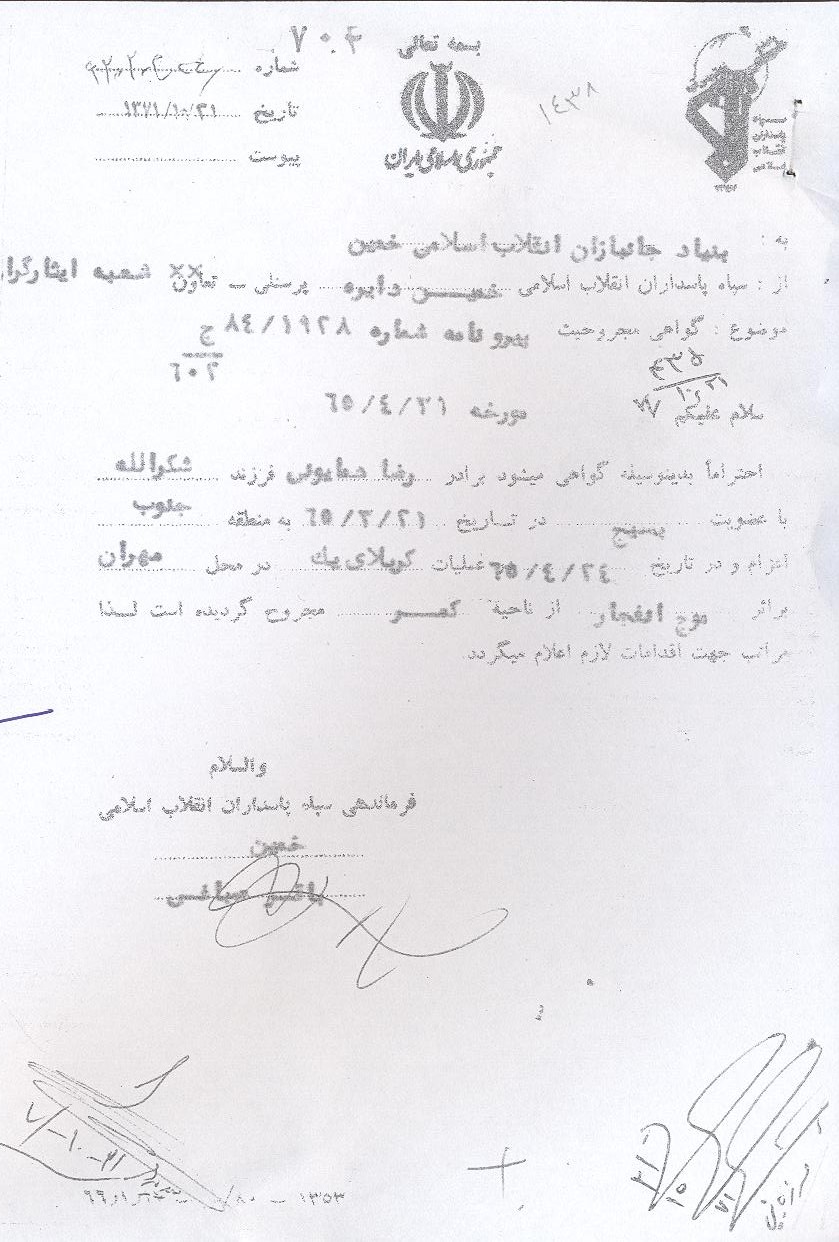 بسمه تعالی
جمهوری اسلامی ایران
۷۰۴
شماره
تاریخ ۱۳۷۱/۱۰/۲۱
پیوست
۱۴۳۸
سپاه پاسداران انقلاب اسلامی
به : بنیاد جانبازان انقلاب اسلامی خمین
از : سپاه پاسداران انقلاب اسلامی خمیـــن دایره پرسنلی ــ تعاون ×× شعبه ایثارگرا
موضوع : گواهی مجروحیت پیرو نامه شماره ۸۴/۱۹۲۸ ج
۶۰۲
سلام علیکم مورخه ۶۵/۴/۳۱
احتراماً بدینوسیله گواهی میشود برادر رضا همایونی فرزند شکرالله
با عضویت بسیج در تـاریخ ۶۵/۳/۲۱ به منطقه جنوب
اعزام و در تاریخ ۶۵/۴/۲۴ عملیات کربلای یک در محل مهران
براثر موج انفجار از ناحیه کمــر مجروح گردیده است لــذا
مراتب جهت اقدامات لازم اعلام میگردد.
والسلام
فرماندهی سپاه پاسداران انقلاب اسلامی
خمین
۱۳۵۳